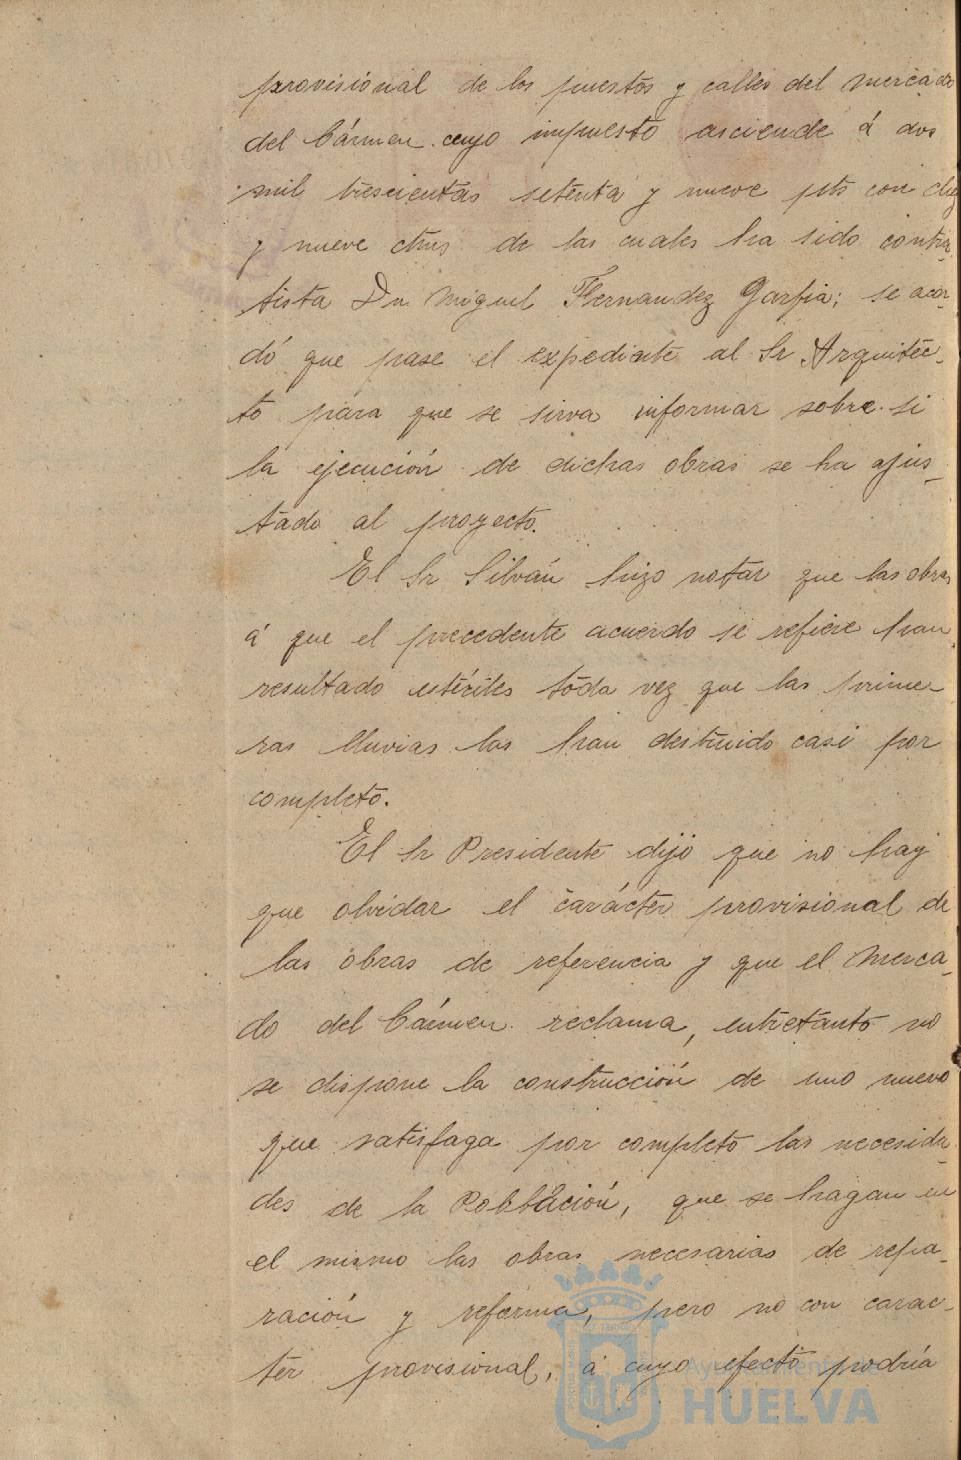 provisional de los puestos y calles del mercado
del Cármen cuyo impuesto asciende á dos
mil trescientas setenta y nueve pts con diez
y nueve ctms de las cuales ha sido contra
tista Dn Miguel Fernandez Garfia; se acor-
dó que pase el expediente al Sr Arquitéc-
to para que se sirva informar sobre si
la ejecución de dichas obras se ha ajus-
tado al proyecto.
El Sr Silván hizo notar que las obras
á que el precedente acuerdo se refiere han
resultado estériles toda vez que las prime-
ras lluvias las han destruido casi por
completo.
El Sr Presidente dijo que no hay
que olvidar el carácter provisional de
las obras de referencia y que el merca-
do del Cármen reclama, entretanto no
se dispone la construcción de uno nuevo
que satisfaga por completo las necesida-
des de la Poblacion, que se hagan en
el mismo las obras necesarias de repa-
ración y reforma, pero no con carac-
ter provisional, á cuyo efecto podría
Ayuntamiento de
HUELVA